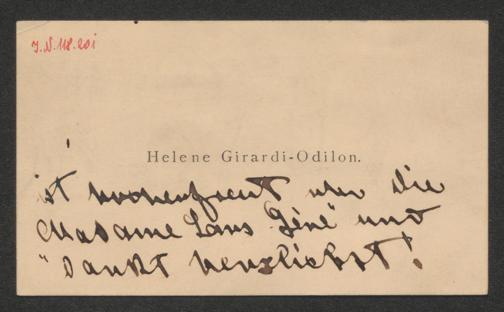 J.N. 118.201
Helene Girardi-Odilon.
ist hocherfreut um die
Madame Sans Gêne" und
"Dankt herzlichst!